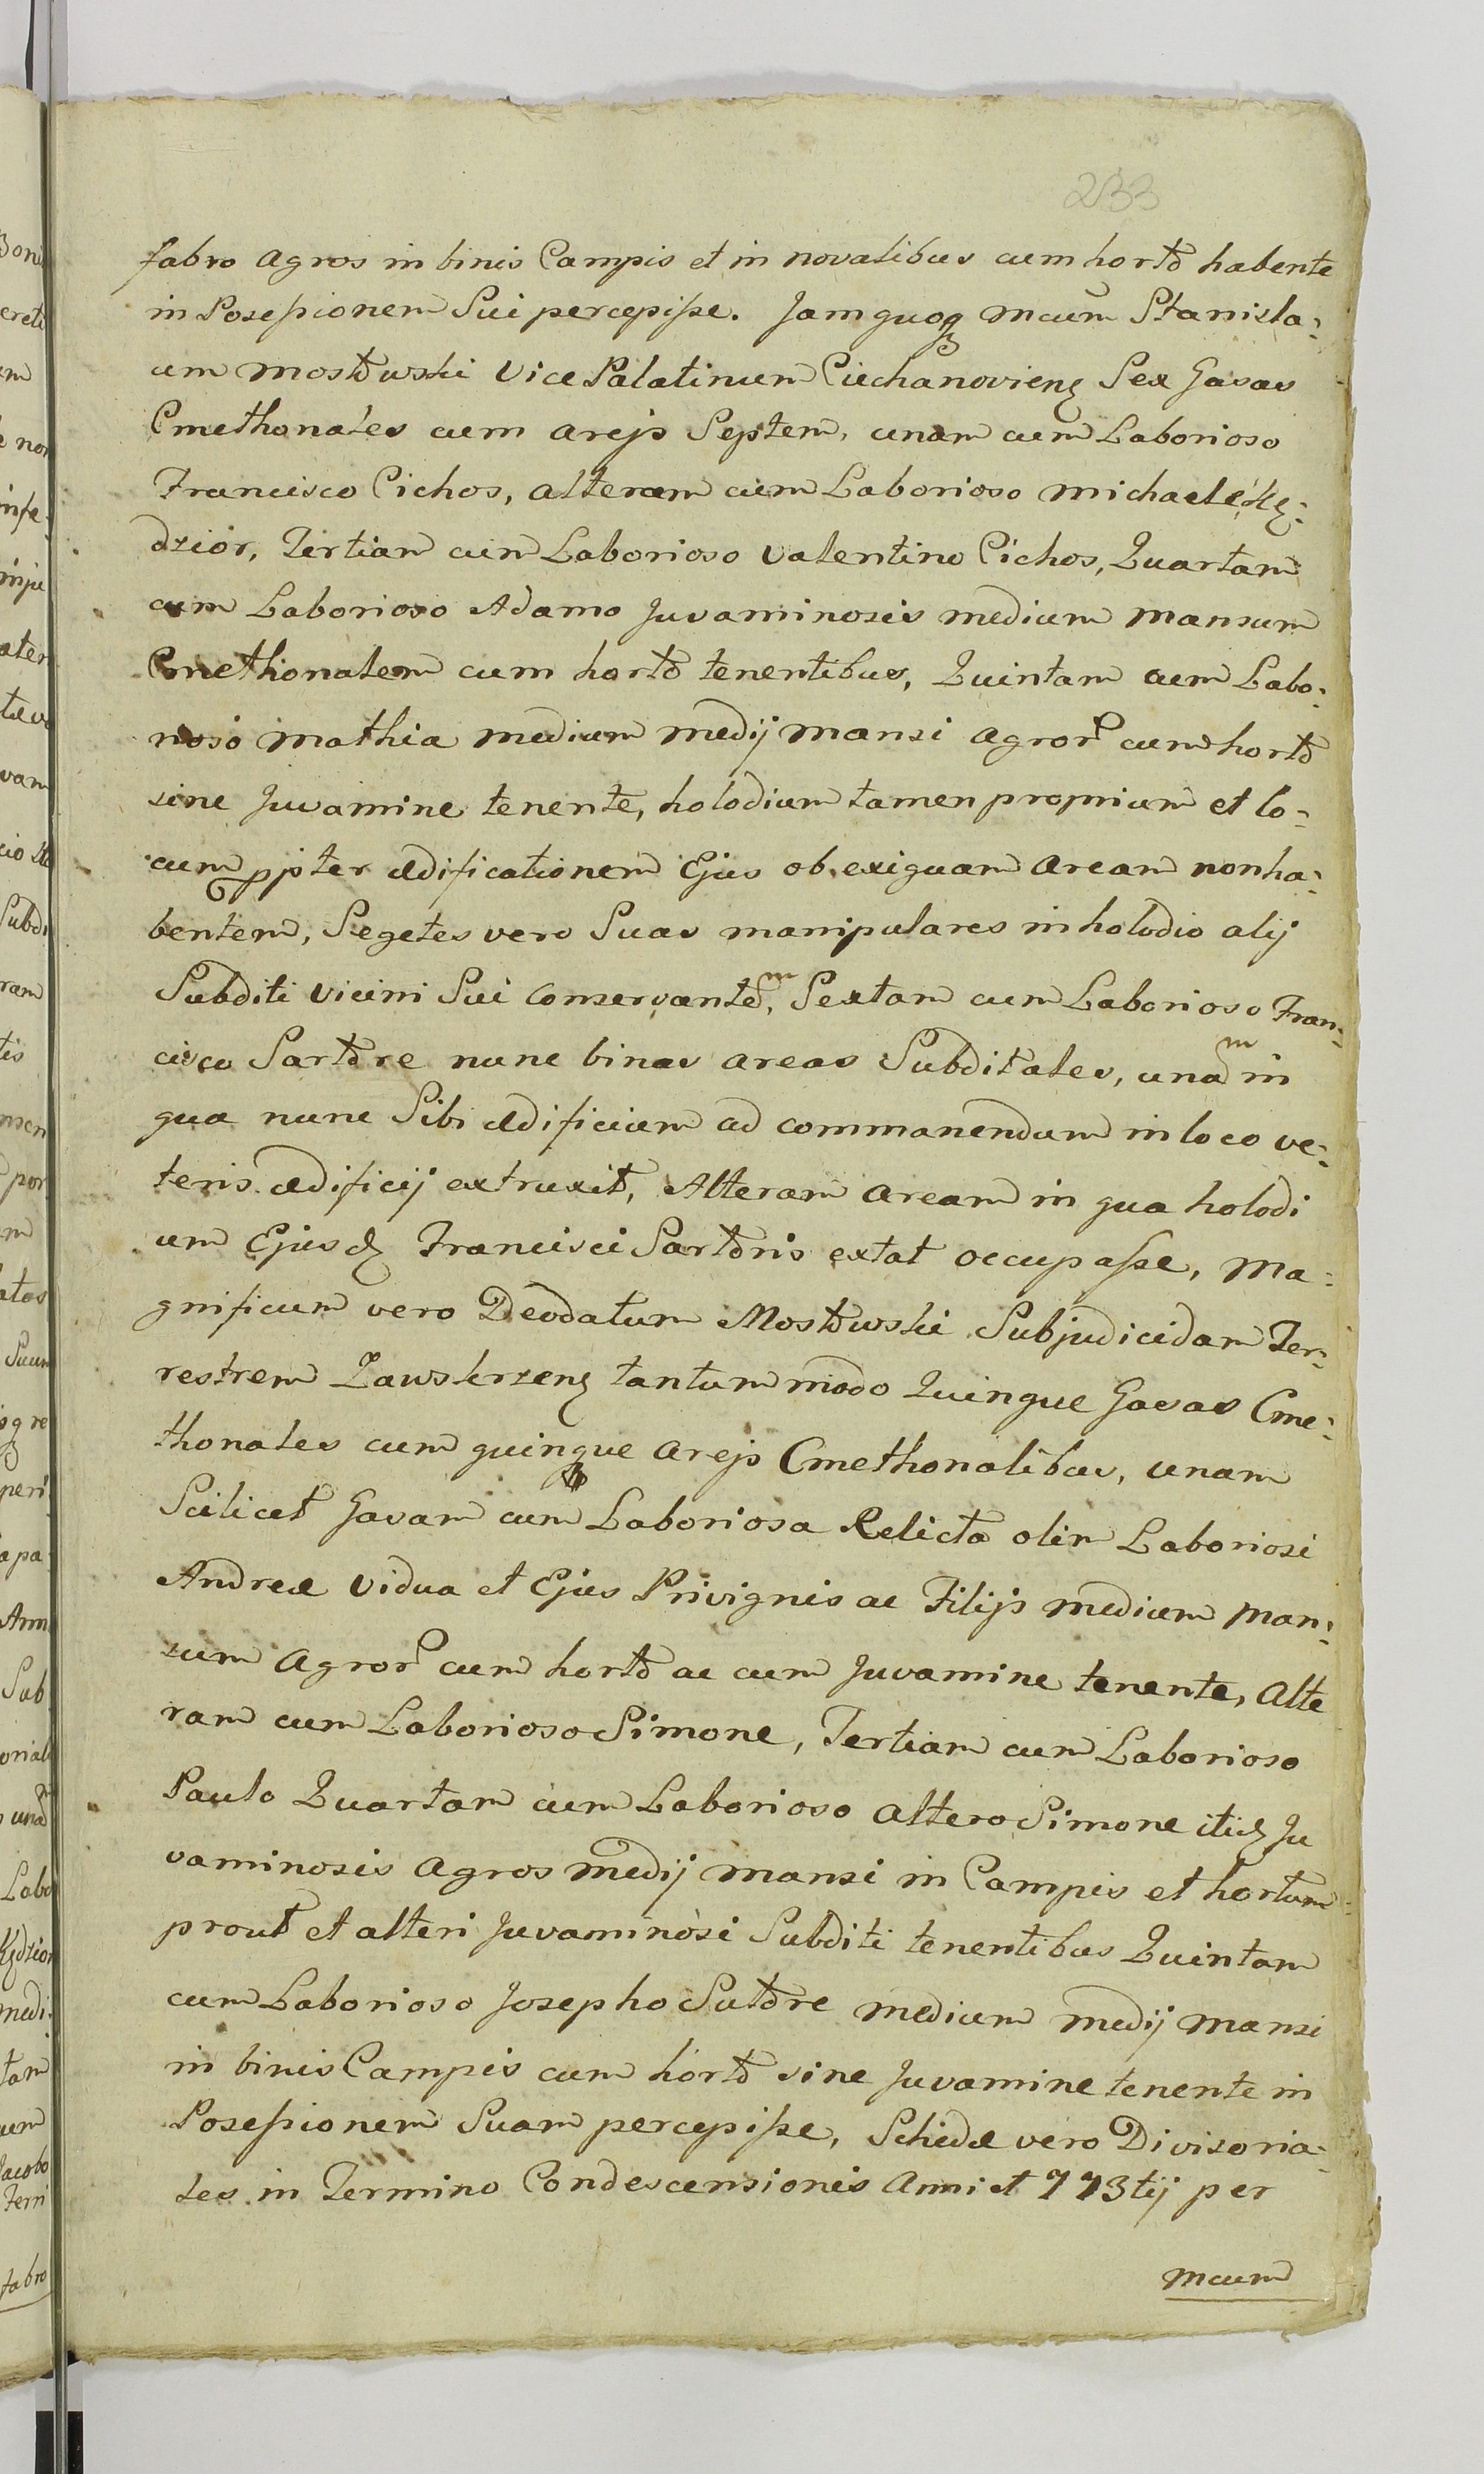 233
fabro agros in binis Campis et in novalibus cum horto habente
in Posessionem Sui percepisse. Jam quoq Mcum Stanisla:
um Mostowski Vice Palatinum Ciechanoviens Sex Gasas
Cmethonales cum areis Septem, unam cum Laborioso
Francisco Cichos, alteram cum Laborioso Michaele Kę:
dzior, Tertiam cum Laborioso Valentino Cichos, Quartam
cum Laborioso Adamo Juvaminosis medium mansum
Cmethonalem cum horto tenentibus, Quintam cum Labo:
rioso Mathia medium medij mansi agror cum horto
sine Juvamine tenente, holodium tamen proprium et lo:
cum ppter ædificationem Ejus ob exiguam aream non ha:
bentem, Segetes vero Suas manipulares in holodio alij
Subditi vicini Sui conservantem, Sextam cum Laborioso Fran:
cisco Sartore nunc binas areas Subditales, unam in
qua nunc Sibi ædificium ad commanendum in loco ve:
teris ædificij extruxit, Alteram aream in qua holodi
um Ejusd Francisci Sartoris extat occupasse, Ma:
gnificum vero Deodatum Mostowski Subjudicidam Ter:
restrem Zawskrzens tantummodo Quinque Gasas Cme:
thonales cum quinque areis Cmethonalibus, unam
Scilicet Gasam cum Laboriosa Relicta olim Laboriosi
Andreæ Vidua et Ejus Privignis ac Filijs medium man:
sum Agror cum horto ac cum Juvamine tenente, Alte
ram cum Laborioso Simone, Tertiam cum Laborioso
Paulo Quartam cum Laborioso altero Simone itid Ju
vaminosis Agros medij mansi in Campis et hortum
prout et alteri Juvaminosi Subditi tenentibus Quintam
cum Laborioso Josepho Sutore medium medij mansi
in binis Campis cum horto sine Juvamine tenente in
Posessionem Suam percepisse, Schedæ vero Divisoria:
les in Termino Condescensionis Anni et 773tij per
Mcum